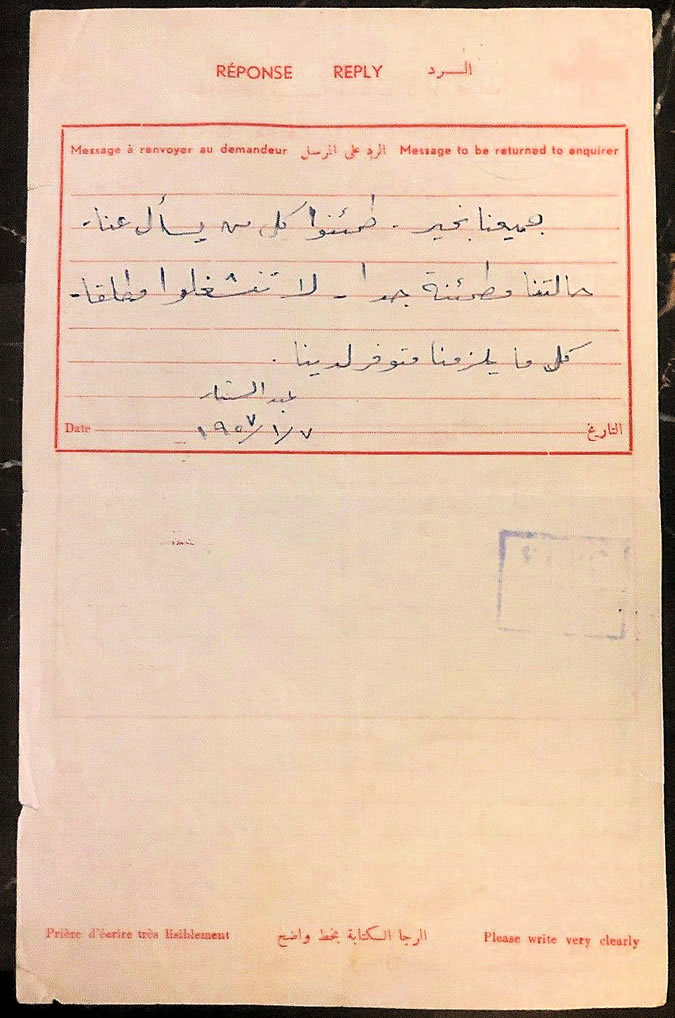 RÉPONSE REPLY الـــرد
Message à renvoyer au demandeur الرد على المرسل Message to be returned to enquirer
جميعنا بخير - طمئنوا كل من يسأل عنا -
حالتنا مطمئنة جدا - لا تنشغلوا مطلقا -
كل ما يلزمنا متوفر لدينا .
عبد الستار
Date ١٩٥٧/١/٧ التاريخ
Prière d'écrire très lisiblement الرجا الكتابة بخط واضح Please write very clearly